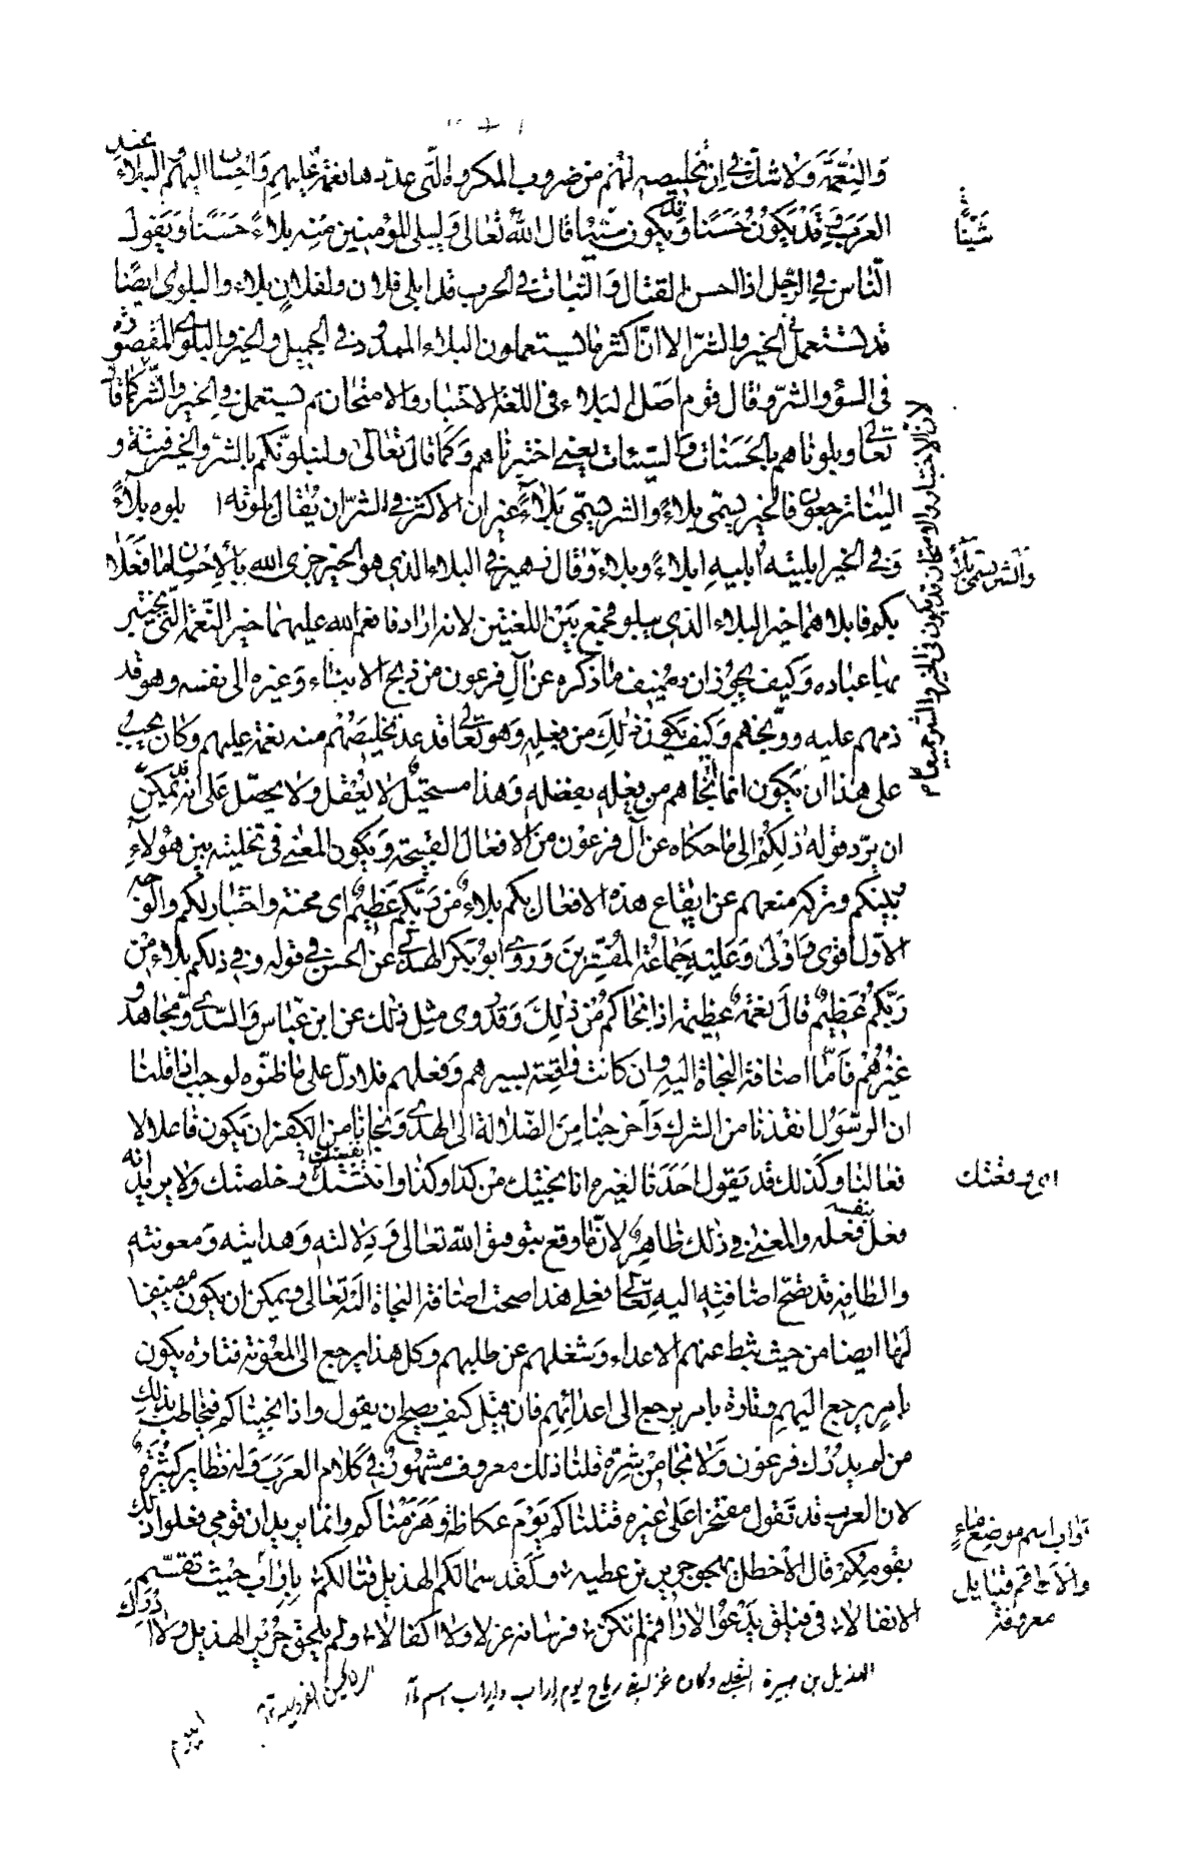 والنعمة ولا شك في ان تخليصه لهم من ضروب المكروه التي عددها نعمة عليهم واحسان اليهم والبلاء عند
العرب قد يكون حسنا وقد يكون سيئا قال الله تعالى وليبلي المؤمنين منه بلاء حسنا ويقول
الناس في الرجل اذا احسن القتال والثبات في الحرب قد ابلى فلان ولفلان بلاء والبلوى ايضا
قد تستعمل في الخير والشر الا ان اكثر ما يستعملون البلاء الممدود في الجميل والخير والبلوى المقصورة
في السوء والشر وقال قوم اصل البلاء في اللغة الاختبار والامتحان ثم يستعمل في الخير والشر كما قال
تعالى وبلوناهم بالحسنات والسيئات يعني اختبرناهم وكما قال تعالى ولنبلونكم بالشر والخير فتنة و
الينا ترجعون فالخير يسمى بلاء والشر يسمى بلاء غير ان الاكثر في الشر ان يقال بلوته ابلوه بلاء
وفي الخير ابليته ابليه ابلاء وبلاء وقال زهير في البلاء الذي هو الخير جزى الله بالاحسان ما فعلا
بكم فابلاهما خير البلاء الذي يبلو فجمع بين اللغتين لانه اراد فانعم الله عليهما خير النعمة التي يختبر
بها عباده وكيف يجوز ان يضيف ما ذكره عن آل فرعون من ذبح الابناء وغيره الى نفسه وهو قد
ذمهم عليه ووبخهم وكيف يكون ذلك من فعله وهو تعالى قد عد تخليصهم منه نعمة عليهم وكان يجب
على هذا ان يكون انما نجاهم من فعله بفعله وهذا مستحيل لا يعقل ولا يحصل على انه قد يمكن
ان يرد قوله ذلكم الى ما حكاه عن آل فرعون من الافعال القبيحة ويكون المعنى في تخليته بين هؤلاء
وبينكم وتركه منعهم عن ايقاع هذه الافعال بكم بلاء من ربكم عظيم اي محنة واختبار لكم والوجه
الاول اقوى واولى وعليه جماعة المفسرين وروى ابو بكر الهذلي عن الحسن في قوله وفي ذلكم بلاء من
ربكم عظيم قال نعمة عظيمة اذ انجاكم من ذلك وقد روى مثل ذلك عن ابن عباس والسدي ومجاهد و
غيرهم فاما اضافة النجاة اليه وان كانت واقعة بسيرهم وفعلهم فلا دل على ما ظنوه لوجب اذا قلنا
ان الرسول انقذنا من الشرك واخرجنا من الضلالة الى الهدى ونجانا من الكفر ان يكون فاعلا لا
فعالنا وكذلك قد يقول احدنا لغيره انا نجيتك من كذا وكذا وخلصتك ولا يريد انه
فعل بنفسه فعله والمعنى في ذلك ظاهر لان ما وقع بتوفيق الله تعالى ودلالته وهدايته ومعونته
والطافه قد تصح اضافته اليه تعالى فعلى هذا صحت اضافة النجاة اليه تعالى ويمكن ان يكون مضيفا
لها ايضا من حيث ثبط عنهم الاعداء وشغلهم عن طلبهم وكل هذا يرجع الى المعونة فتارة يكون
بامر يرجع اليهم وتارة بامر يرجع الى اعدائهم فان قيل كيف يصح ان يقول واذ انجيناكم فيخاطب بذلك
من لم يدرك فرعون ولا نجا من شره قلنا ذلك معروف مشهور في كلام العرب وله نظاير كثيرة
لان العرب قد تقول مفتخرا على غيره قتلناكم يوم عكاظ وهزمناكم وانما يريد ان قومي فعلوا ذلك
بقومكم قال الاخطل يهجو جرير بن عطية ولقد سما لكم الهذيل فنالكم باراب حيث تقسم
الانفالا في فيلق يدعو الاراقم لم تكن فرسانه عزلا ولا اكفالا ولم يلحق جرير الهذيل ولا ادرك
الهذيل بن هبيرة التغلبي وكان غزا بني رياح يوم اراب واراب اسم ماء
شيئا
لان الاختبار والامتحان قد يكون في الخير والشر جميعا
والشر يسمى بلاء
اراب اسم موضع ماء
والاراقم قبايل
معروفة